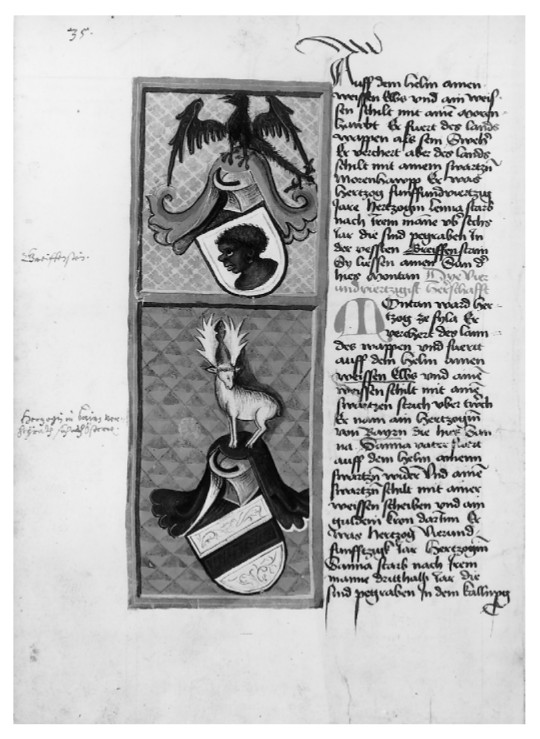 35.
Auff dem helm ainen
weissen Elbs vnd ain weis-
sen schilt mit aine Moren-
hawbt Er fuert des lands
wappen als sein Swech
Er verchert aber des lands
schilt mit ainem swartzn
Morenhawpp Er was
hertzog funffundviertzig
Jare Hertzogin starb
nach Irem mane
Jar die sind pegraben In
der vessten Greiffenstain
Sy liessen ainen Sun d
hies Montan Dye vier
undviertzigist herschafft
Montan ward her-
tzog ze syla Er
verchert des lann-
des wappen vnd fuertt
auff dem helm ainen
weissen Elbs vnd aine
weissen schilt mit aine
swartzen strich vber twrch
Er nam ain hertzogin
von Bayrn die hies San-
na. Sanna vater fuert
auff dem helm ainem
swartzn wider Vnd aine
swartzn schilt mit ainer
weissen scheiben vnd ain
guldein kron darinn Er
was hertzog Vierund-
funfftzigk Jar Hertzogin
Sanna starb nach Irem
manne dritthalb Jar die
sind pegraben In dem